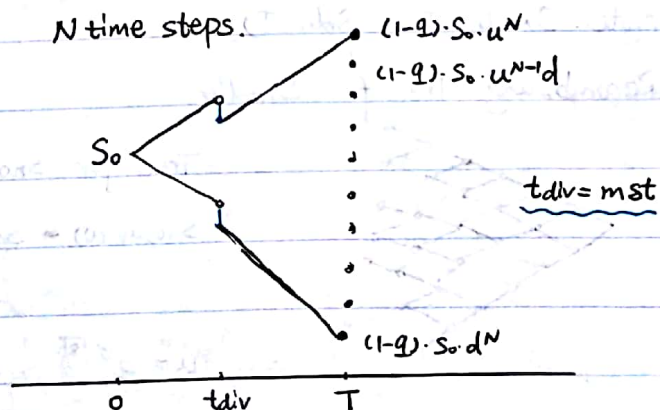 N time steps.
(1-q)·S₀·uᴺ
(1-q)·S₀·uᴺ⁻¹d
S₀
tdiv = mδt
(1-q)·S₀·dᴺ
0 tdiv T